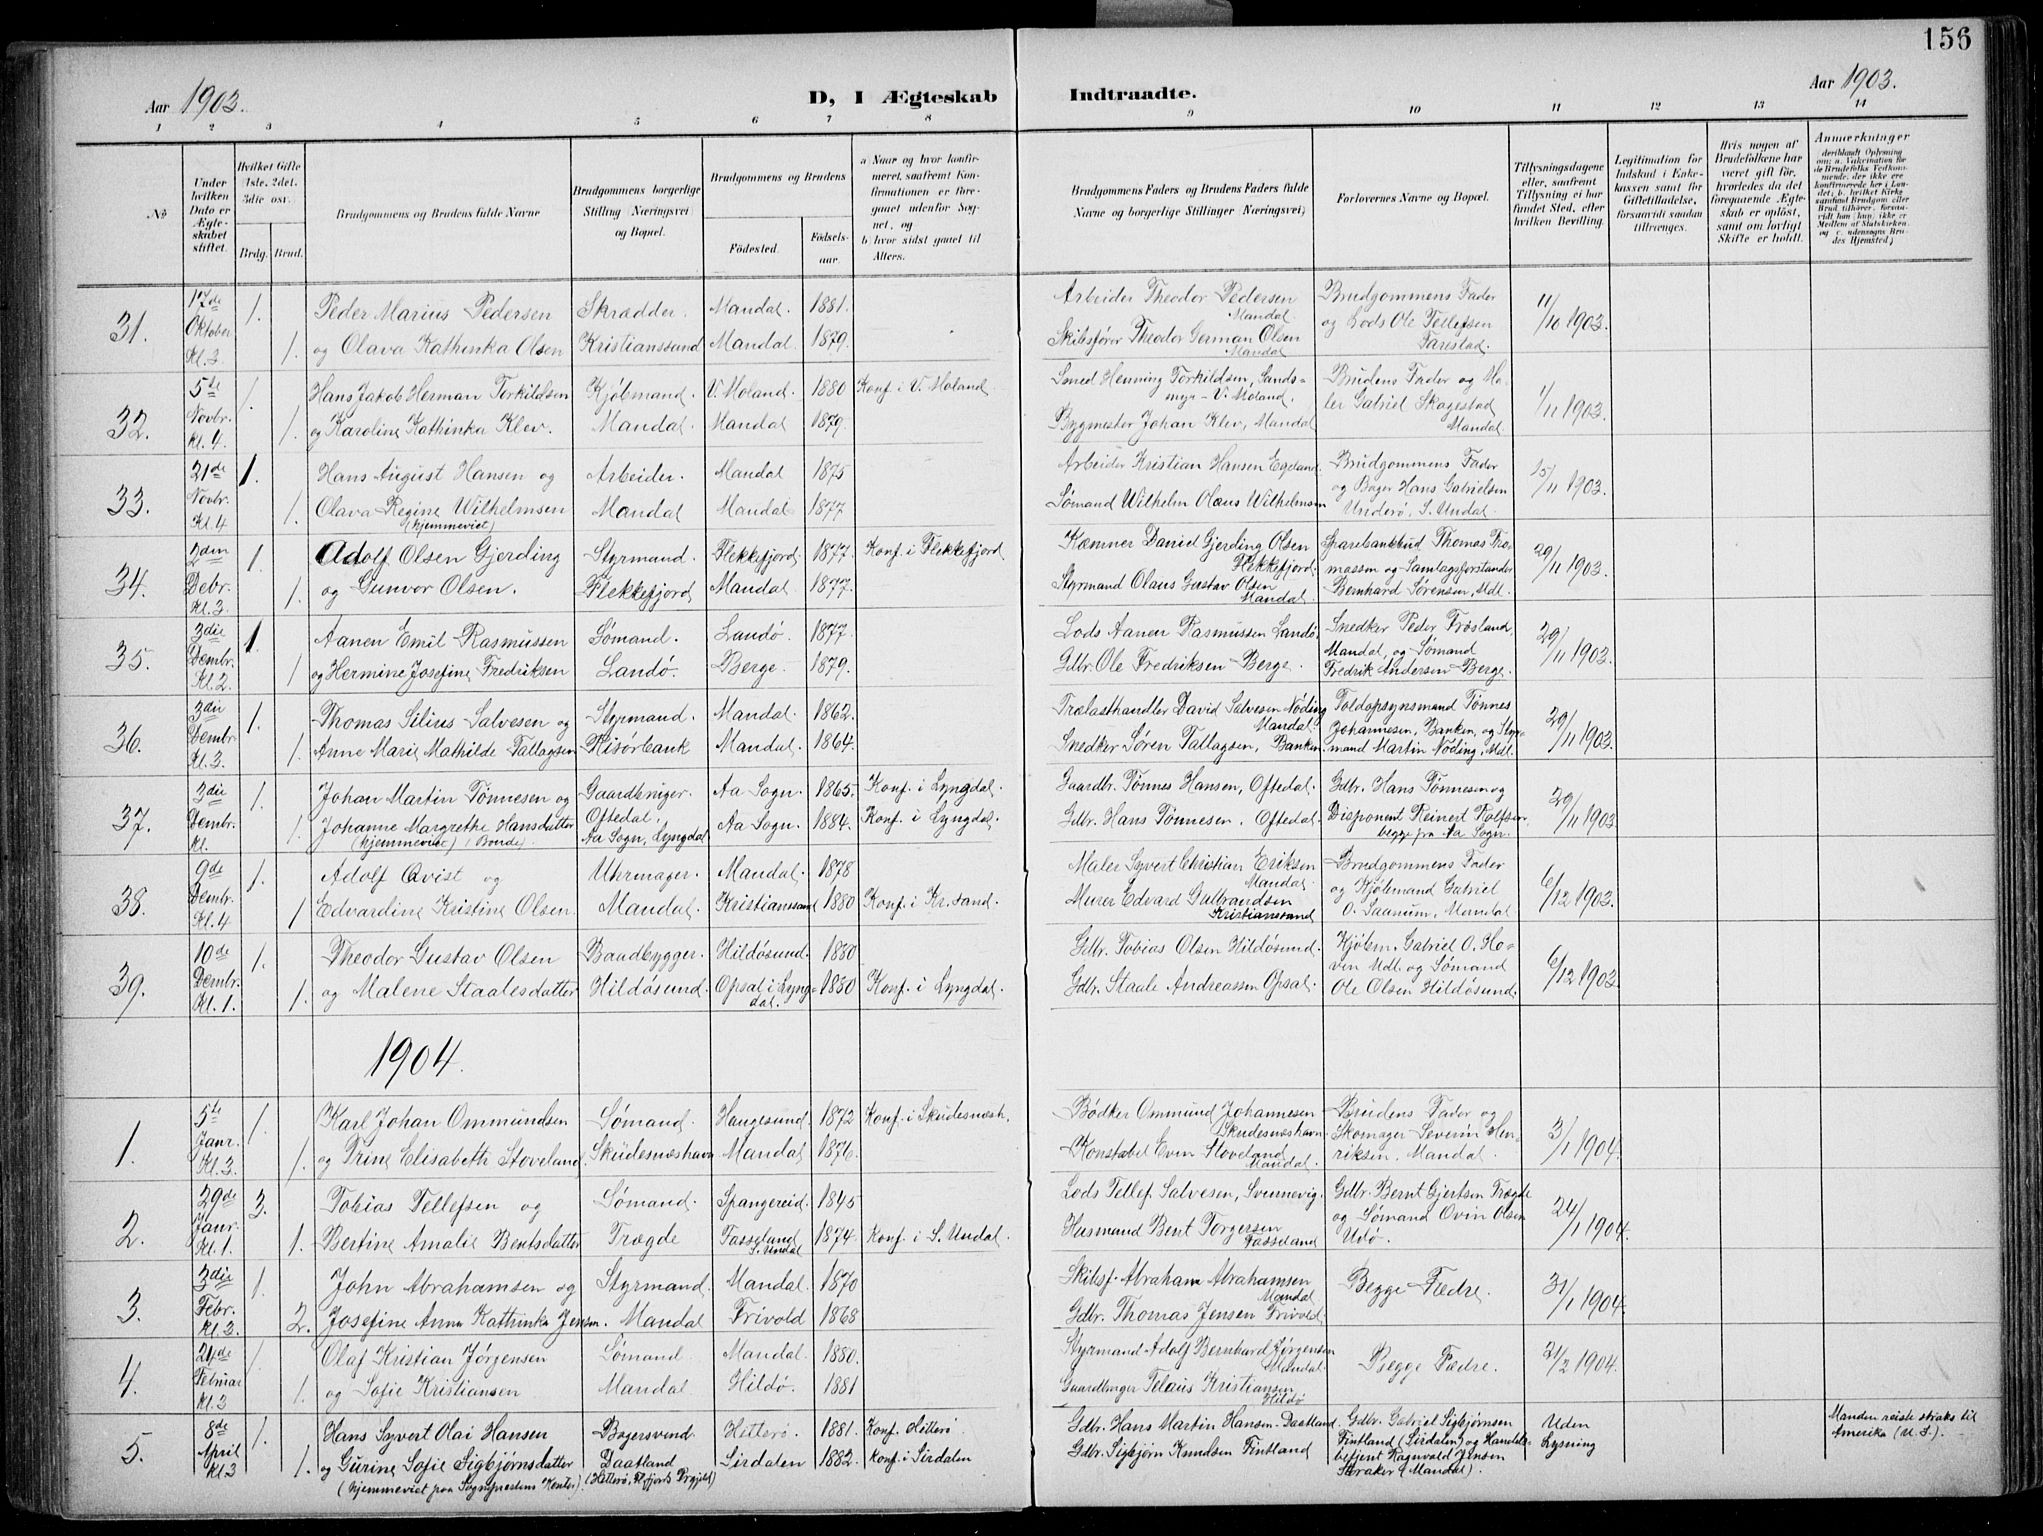 156
Aar 1903.
D, I Ægteskab Indtraadte.
Aar 1903.
1 2 3 4 5 6 7 8 9 10 11 12 13 14
No
Under hvilken Dato er Ægteskabet stiftet.
Hvilket Gifte 1ste, 2det, 3die osv.
Brdg. Brud.
Brudgommens og Brudens fulde Navne
Brudgommens borgerlige Stilling Næringsvei og Bopæl.
Brudgommens og Brudens
Fødested.
Fødsels-aar.
a) Naar og hvor konfirmeret, saafremt Konfirmationen er foregaaet udenfor Sognet, og
b) hvor sidst gaaet til Alters.
Brudgommens Faders og Brudens Faders fulde Navne og borgerlige Stillinger Næringsvei;
Forlovernes Navne og Bopæl.
Tillysningsdagene eller, saafremt Tillysning ei har fundet Sted, efter hvilken Bevilling.
Legitimation for Indskud i Enkekassen samt for Giftetilladelse, forsaavidt saadan tiltrænges.
Hvis nogen af Brudefolkene har været gift før, hvorledes da det foregaaende Ægteskab er opløst, samt om lovligt Skifte er holdt.
Anmærkninger
deriblandt Oplysning om: a. Vakcination for de Brudefolks Vedkommende, der ikke ere konfirmerede her i Landet; b. hvilket Kirkesamfund Brudgom eller Brud tilhører, forsaavidt han/hun ikke er Medlem af Statskirken og c. udensogns Brudes Hjemsted;
31.
17de Oktober Kl. 3.
1.
Peder Marius Pedersen
Skrædder.
Mandal.
1881.
Arbeider Theodor Pedersen Mandal.
Brudgommens Fader
11/10 1903.
1.
og Olava Kathinka Olsen
Kristianssand
Mandal.
1879.
Skibsfører Theodor German Olsen Mandal
og Lods Ole Tellefsen Farestad.
32.
5te Novbr. kl. 4.
1.
Hans Jakob Herman Torkildsen
Kjøbmand.
V. Moland.
1880
Konf. i V. Moland
Smed Henning Torkildsen, Sandsmyr - V. Moland.
Brudens Fader og Ma-
1/11 1903.
1.
og Karoline Kathinka Klev.
Mandal.
Mandal
1879.
Bygmester Johan Klev, Mandal
ler Gabriel Skagestad Mandal
33.
21de Novbr. Kl. 4
1.
Hans August Hansen og
Arbeider.
Mandal
1875
Arbeider Kristian Hansen Egeland
Brudgommens Fader
15/11 1903.
1.
Olava Regine Wilhelmsen (hjemmeviet)
Mandal
Mandal
1877
Sømand Wilhelm Olaus Wilhelmsen
og Bager Hans Gabrielsen Underø, S. Undal.
34.
2den Debr. Kl. 3.
1.
Adolf Olsen Gjerding
Styrmand.
Flekkefjord
1877.
Konf. i Flekkefjord
Kæmner Daniel Gjerding Olsen Flekkefjord
Sparebankbud Thomas Tho-
29/11 1903.
1.
og Gunvor Olsen.
Flekkefjord
Mandal
1877.
Styrmand Olaus Gustav Olsen Mandal.
massen og Samlagsforstander Bernhard Sørensen, Mdl.
35.
3die Dembr. Kl. 2.
1.
Aanen Emil Rasmussen
Sømand.
Landø.
1877.
Lods Aanen Rasmussen Landø,
Snedker Peder Frøsland,
29/11 1903.
1
og Hermine Josefine Fredriksen
Landø.
Berge.
1879.
Gdbr. Ole Fredriksen Berge.
Mandal, og Sømand Fredrik Andersen Berge.
36.
3die Dembr. Kl. 3.
1.
Thomas Silius Salvesen og
Styrmand.
Mandal.
1862.
Trælasthandler David Salvesen Nøding Mandal.
Toldopsynsmand Tønnes
29/11 1903.
1.
Anne Marie Mathilde Tallagsen
Risørbank
Mandal.
1864.
Snedker Søren Tallagsen, Banken
Johannesen, Banken, og Styrmand Martin Nøding, Mdl.
37.
3die Dembr. Kl.
1.
Johan Martin Tønnesen og
Gaardbruger.
Aa Sogn.
1865.
Konf. i Lyngdal.
Gaardbr. Tønnes Hansen, Oftedal.
Gdbr. Hans Tønnesen og
29/11 1903
1.
Johanne Margrethe Hansdatter (hjemmeviet)
Oftedal, Aa Sogn, Lyngdal
Aa Sogn.
1884.
Konf. i Lyngdal.
Gdbr. Hans Tønnesen. Oftedal.
Disponent Reinert Rolfsen begge fra Aa Sogn.
38.
9de Dembr. Kl. 4
1.
Adolf Qvist og
Uhrmager.
Mandal.
1878
Maler Syvert Christian Eriksen Mandal.
Brudgommens Fader
6/12 1903.
1
Edvardine Kristine Olsen.
Mandal.
Kristianssand
1880
Konf. i Kr.sand.
Murer Edvard Gulbrandsen Kristianssand
og Kjøbmand Gabriel O. Saanum, Mandal
39.
10de Dembr. Kl. 1.
1.
Theodor Gustav Olsen
Baadbygger.
Hildøsund.
1880
Gdbr. Tobias Olsen Hildøsund.
Kjøbm. Gabriel O. Ho-
6/12 1903.
1.
og Malene Staalesdatter
Hildøsund.
Opsal i Lyngdal.
1880
Konf. i Lyngdal.
Gdbr. Staale Andreassen Opsal.
ven Mdl. og Sømand Ole Olsen Hildøsund.
1904.
1.
5te Janr. Kl. 3.
1.
Karl Johan Ommundsen
Sømand.
Haugesund.
1872
Konf. i Skudesnæsh.
Bødker Ommund Johannesen Skudesnæshavn.
Brudens Fader og
3/1 1904.
1.
og Trine Elisabeth Stoveland.
Skudesnæshavn
Mandal
1876.
Konstabel Even Stoveland Mandal
Skomager Severin Henriksen, Mandal.
2.
29de Janr. Kl. 1.
3.
Tobias Tellefsen og
Sømand.
Spangereid.
1845
Lods Tellef Salvesen, Svennevig.
Gdbr. Bernt Gjertsen Trægde
24/1 1904.
1.
Bertine Amalie Bentsdatter
Trægde
Fasseland S. Undal
1874.
Konf. i S. Undal.
Husmand Bent Torgersen Fasseland
og Sømand Ovin Olsen Udø.
3.
3die Febr. kl. 3.
1.
John Abrahamsen og
Styrmand.
Mandal.
1870
Skibsf. Abraham Abrahamsen Mandal
Begge Fædre.
31/1 1904.
2.
Josefine Anna Kathinka Jensen.
Mandal
Frivold
1868
Gdbr. Thomas Jensen Frivold.
4.
24de Februar kl. 3
1.
Olaf Kristian Jørgensen
Sømand.
Mandal.
1880.
Styrmand Adolf Bernhard Jørgensen Mandal.
Begge Fædre.
21/2 1904.
1.
og Sofie Kristiansen
Mandal.
Hildø.
1881
Gaardbruger Telaus Kristiansen Hildø
5.
8de April Kl 3
1.
Hans Syvert Olai Hansen
Bagersvend.
Hitterø
1881.
Konf. Hitterø.
Gdbr. Hans Martin Hansen Daatland.
Gdbr. Gabriel Sigbjørnsen
Uden Lysning
Manden reiste straks til Amerika (U. S.).
1.
og Gurine Sofie Sigbjørnsdatter (hjemmeviet paa Sognepræstens Kontor)
Daatland (Hitterø, Fl.fjords Prgjld)
Sirdalen
1882.
Konf. i Sirdalen
Gdbr. Sigbjørn Knudsen Fintland
Fintland (Sirdalen) og Handelsbetjent Ragnvald Jensen Straker (Mandal).